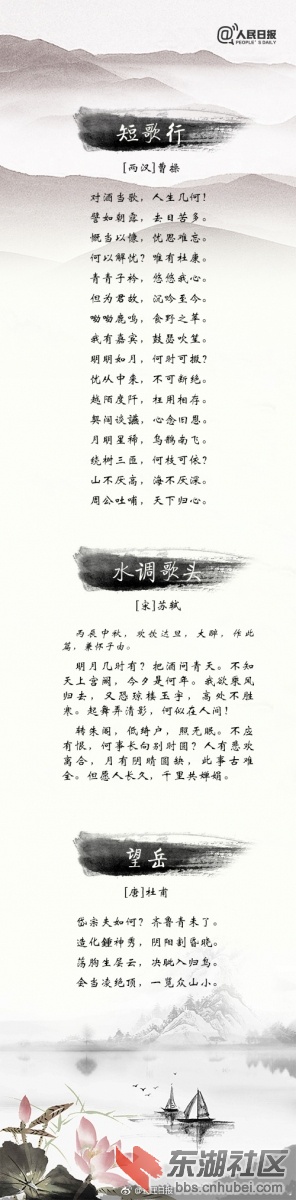 @人民日报
PEOPLE'S DAILY
短歌行
[两汉]曹操
对酒当歌，人生几何！
譬如朝露，去日苦多。
慨当以慷，忧思难忘。
何以解忧？唯有杜康。
青青子衿，悠悠我心。
但为君故，沉吟至今。
呦呦鹿鸣，食野之苹。
我有嘉宾，鼓瑟吹笙。
明明如月，何时可掇？
忧从中来，不可断绝。
越陌度阡，枉用相存。
契阔谈讌，心念旧恩。
月明星稀，乌鹊南飞。
绕树三匝，何枝可依？
山不厌高，海不厌深。
周公吐哺，天下归心。
水调歌头
[宋]苏轼
丙辰中秋，欢饮达旦，大醉，作此
篇，兼怀子由。
明月几时有？把酒问青天。不知
天上宫阙，今夕是何年。我欲乘风
归去，又恐琼楼玉宇，高处不胜
寒。起舞弄清影，何似在人间！
转朱阁，低绮户，照无眠。不应
有恨，何事长向别时圆？人有悲欢
离合，月有阴晴圆缺，此事古难
全。但愿人长久，千里共婵娟。
望岳
[唐]杜甫
岱宗夫如何？齐鲁青未了。
造化钟神秀，阴阳割昏晓。
荡胸生层云，决眦入归鸟。
会当凌绝顶，一览众山小。
东湖社区
bbs.cnhubei.com